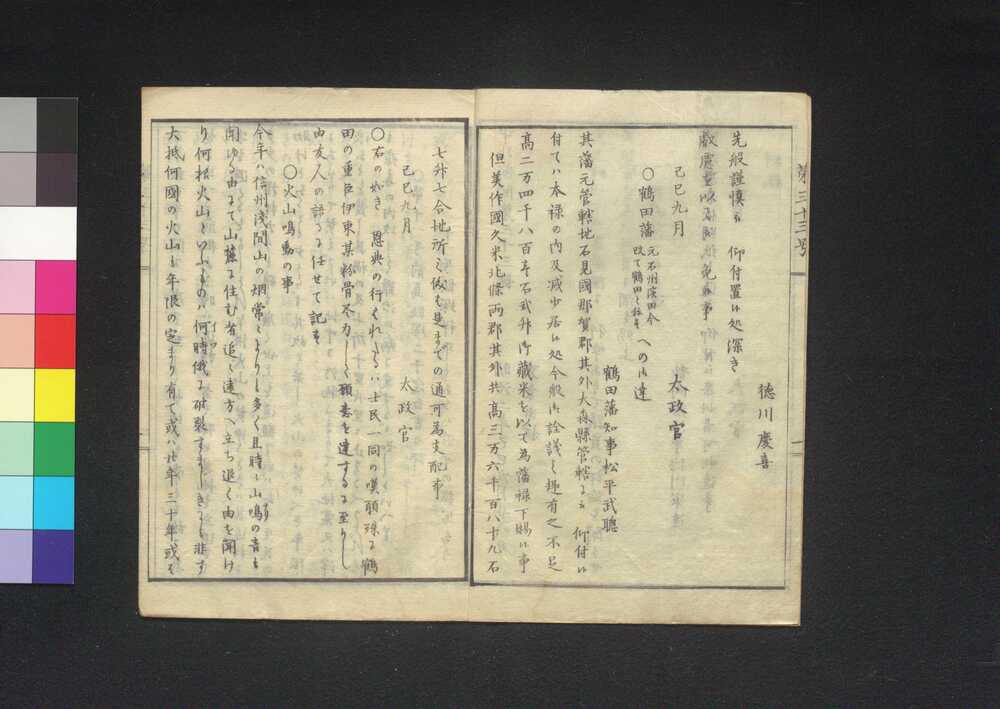 第三十三号
徳川慶喜
先般謹慎被 仰付置候処深き
叡慮を以
己巳九月
太政官
○鶴田藩 元石州濱田今改て鶴田と称す への御達
鶴田藩知事松平武聰
其藩元管轄地石見國那賀郡其外大森縣管轄に被 仰付候
付ては本禄の内及減少居候処今般御詮議之趣有之不足
高二万四千八百壱石弐升御蔵米を以て為藩禄下賜候事
但美作國久米北條両郡其外共高三万六千百八十九石
七升七合地所之儀も是まての通可為支配事
己巳九月
太政官
○右の如き 恩典の行くれたるハ士民一同の嘆願殊に鶴
田の重臣伊東某粉骨尽力して願意を達するに至りし
由友人の語るに任せて記す
○火山鳴動の事
今年ハ信州浅間山の烟常よりも多く且時々山鳴の音も
聞ゆる由にて山麓に住む者追々遠方へ立ち退く由を聞け
り何松火山といふものハ何時俄に破裂すましきにも非す
大抵何國の火山も年限の定まり有て或ハ廿年三十年或は